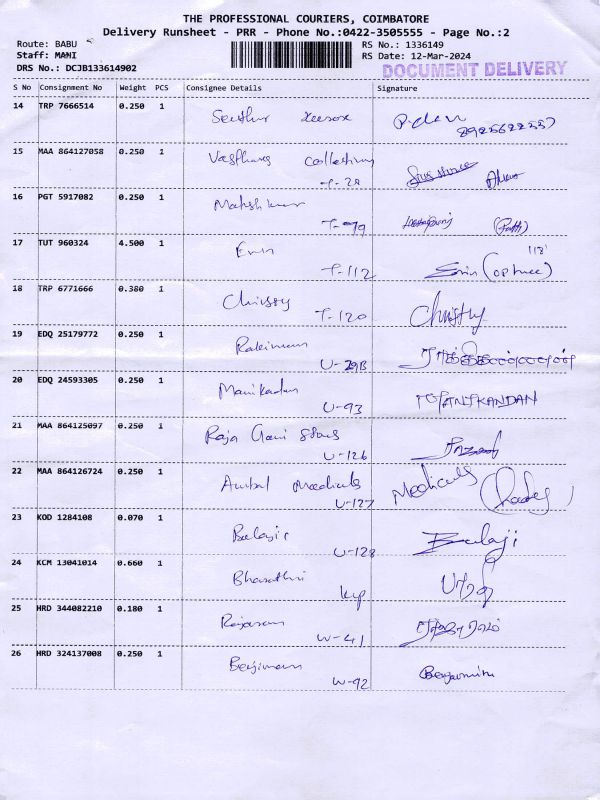 THE PROFESSIONAL COURIERS, COIMBATORE
Delivery Runsheet - PRR - Phone No.:0422-3505555 - Page No.:2
Route: BABU
Staff: MANI
DRS No.: DCJB133614902
RS No.: 1336149
RS Date: 12-Mar-2024
DOCUMENT DELIVERY
S No Consignment No Weight PCS Consignee Details Signature
14 TRP 7666514 0.250 1
8925622557
15 MAA 864127058 0.250 1
T-28
16 PGT 5917082 0.250 1
T-79
17 TUT 960324 4.500 1
T-112
18 TRP 6771666 0.380 1 Christy
T-120 Christy
19 EDQ 25179772 0.250 1
U-29B
20 EDQ 24593305 0.250 1 Manikadan MANIKANDAN
U-93
21 MAA 864125097 0.250 1 Raja Gani Stores
U-126
22 MAA 864126724 0.250 1 Ambal Medicals Medicals
U-127
23 KOD 1284108 0.070 1 Balaji Balaji
U-128
24 KCM 13041014 0.660 1 Bharathi
25 HRD 344082210 0.180 1 Rajaram
W-41
26 HRD 324137008 0.250 1 Benjimam Benjamin
W-92